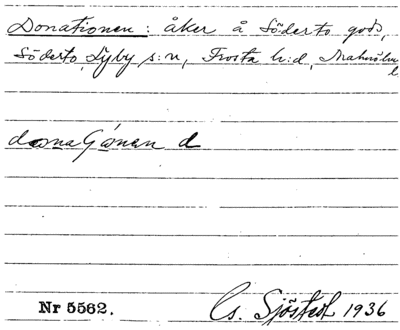 Donationen: åker å Söderto gods,
Söderto, Lyby s:n, Frosta h:d, Malmöhus
l
d
Nr 5562. Sjöstedt 1936